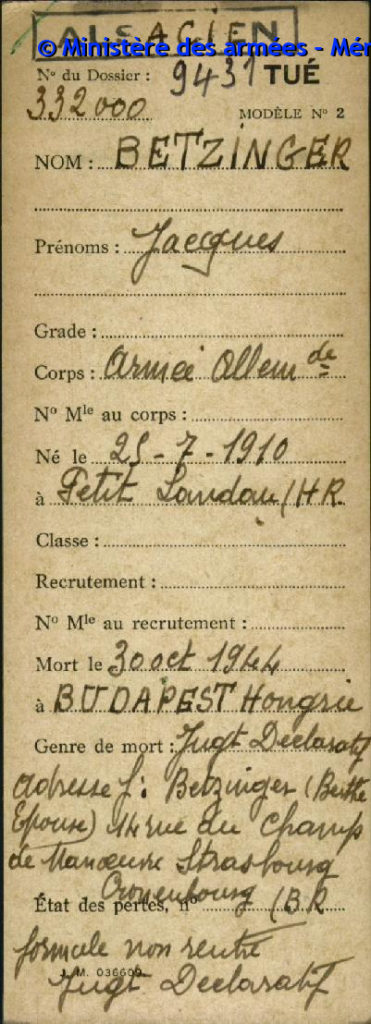 ALSACIEN
© Ministère des armées - Mém
N° du Dossier : 9431 TUÉ
332000
MODÈLE N° 2
NOM : BETZINGER
Prénoms : Jacques
Grade :
Corps : Armée Allem de
N° Mle au corps :
Né le 25-7-1910
à Petit Landau (HR
Classe :
Recrutement :
N° Mle au recrutement :
Mort le 30 oct 1944
à BUDAPEST Hongrie
Genre de mort : Jugt Déclaratif
adresse f: Betzinger (Berthe
Epouse) 14 rue du Champ
de Manœuvre Strasbourg
Cronenbourg (BR
État des pertes, n°
formule non rentré
J. M. 036600.
Jugt Déclaratif